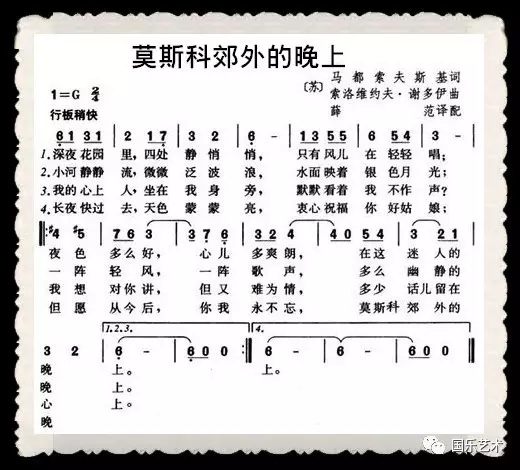 莫斯科郊外的晚上
〔苏〕 马都索夫斯基词
索洛维约夫·谢多伊曲
薛 范译配
1=G 2/4
行板稍快
6 1 3 1 | 2 1 7 | 3 2 | 6 - | 1 3 5 5 | 6 5 4 | 3 - |
1.深夜花园 里,四处 静悄 悄, 只有风儿 在轻轻 唱;
2.小河静静 流,微微 泛波 浪, 水面映着 银色月 光;
3.我的心上 人,坐在 我身 旁, 默默看着 我不作 声?
4.长夜快过 去,天色 蒙蒙 亮, 衷心祝福 你好姑 娘;
#4 #5 | 7 6 3 |
夜色 多么好, 心儿 多爽朗, 在这 迷人的
一阵 轻风, 一阵 歌声, 多么 幽静的
我想 对你讲, 但又 难为情, 多少 话儿留在
但愿 从今后, 你我 永不忘, 莫斯科 郊外的
1.2.3. 4.
3 2 | 6 - | 6 0 0 :‖ 6 - | 6 0 0 ‖
晚 上。 上。
晚 上。
心 上。
晚
国乐艺术